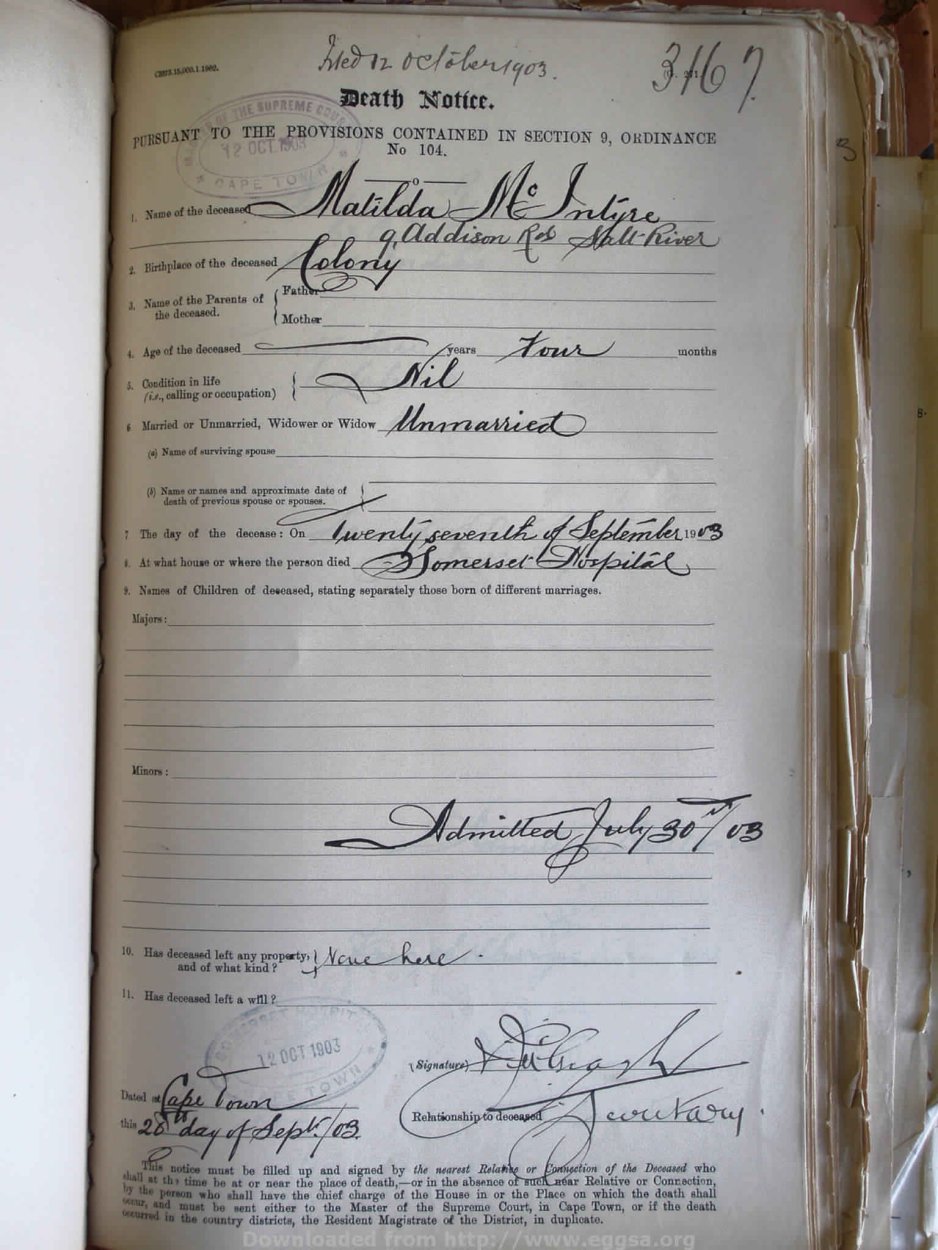 CM75.15,000.1.1902.
Filed 12 October 1903.
3167.
Death Notice.
PURSUANT TO THE PROVISIONS CONTAINED IN SECTION 9, ORDINANCE
No 104.
OF THE SUPREME
12 OCT 1903
CAPE TOWN
1. Name of the deceased Matilda Mc Intyre
9, Addison Rd Salt River
2. Birthplace of the deceased Colony
3. Name of the Parents of the deceased. Father
Mother
4. Age of the deceased years Four months
5. Condition in life
(i.e., calling or occupation) Nil
6 Married or Unmarried, Widower or Widow Unmarried
(a) Name of surviving spouse
(b) Name or names and approximate date of
death of previous spouse or spouses.
7 The day of the decease: On Twenty seventh of September 1903
8. At what house or where the person died Somerset Hospital
9. Names of Children of deceased, stating separately those born of different marriages.
Majors:
Minors:
Admitted July 30th/03
10. Has deceased left any property,
and of what kind? None here.
11. Has deceased left a will?
12 OCT 1903
(Signature)
Dated at Cape Town
Relationship to deceased Secretary.
this 28th day of Sept./03.
This notice must be filled up and signed by the nearest Relative or Connection of the Deceased who
shall at the time be at or near the place of death,—or in the absence of such near Relative or Connection,
by the person who shall have the chief charge of the House in or the Place on which the death shall
occur, and must be sent either to the Master of the Supreme Court, in Cape Town, or if the death
occurred in the country districts, the Resident Magistrate of the District, in duplicate.
Downloaded from http://www.eggsa.org